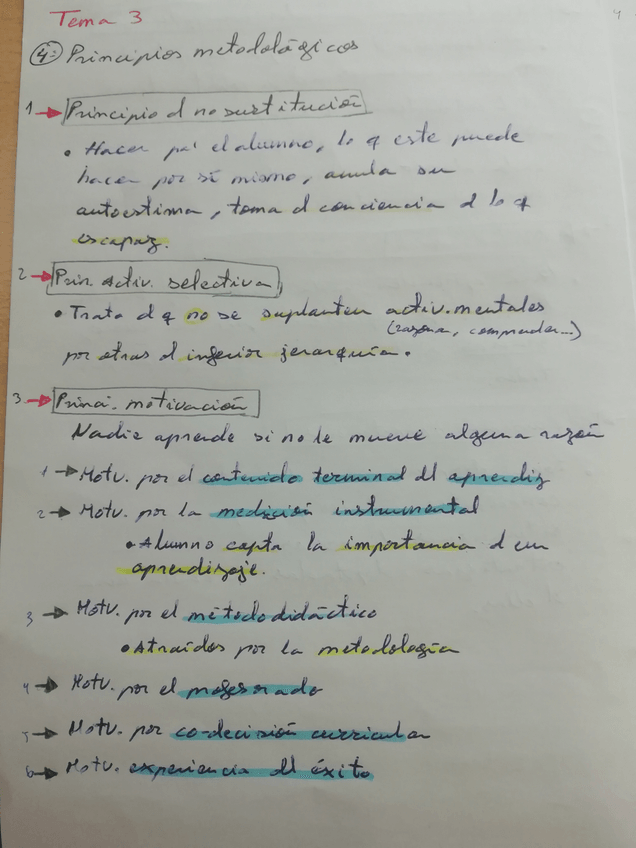 Tema 3
4: Principios metodológicos
1 → Principio d no sustitución
• Hacer pa' el alumno, lo q este puede
hacer por sí mismo, anula su
autoestima, toma d conciencia d lo q
es capaz.
2 → Prin. Activ. selectiva
• Trata d q no se suplanten activ. mentales
(razona, comprender...)
por otras d inferior jerarquía.
3 → Princi. motivación
Nadie aprende si no le mueve alguna razón
1 → Motv. por el contenido terminal del aprendiz
2 → Motv. por la medición instrumental
• Alumno capta la importancia d un
aprendizaje.
3 → Motv. por el método didáctico
• Atraídos por la metodología
4 → Motv. por el profesorado
5 → Motv. por co-decisión curricular
6 → Motv. experiencia del éxito